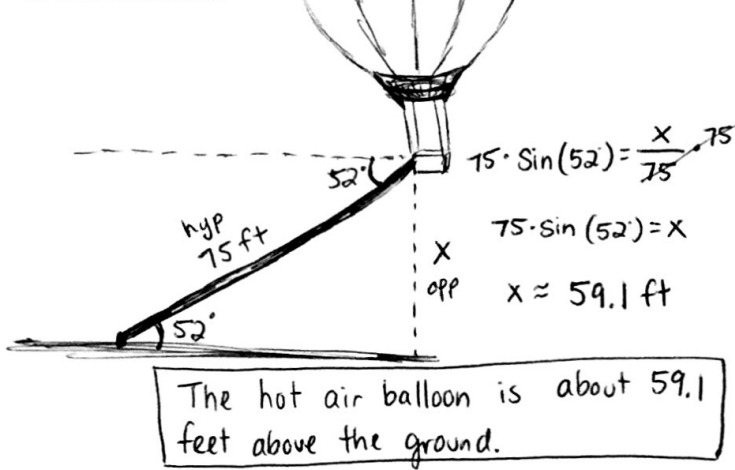 52°
hyp
75 ft
52°
x
opp
75 · Sin(52°) = x/75 · 75
75 · Sin (52°) = x
x ≈ 59.1 ft
The hot air balloon is about 59.1
feet above the ground.